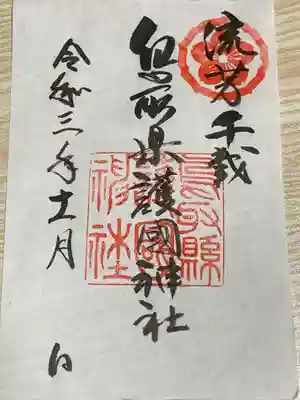 流芳千載
鳥取県護國神社
鳥取縣護國神社
令和三年十一月　日